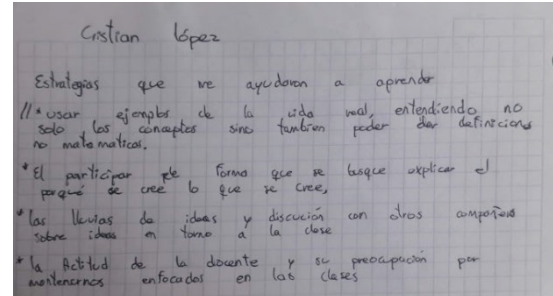 Cristian López
Estrategias que me ayudaron a aprender
//* usar ejemplos de la vida real, entendiendo no
solo los conceptos sino tambien poder dar definiciones
no matematicas.
* El participar de forma que se busque explicar el
porqué se cree lo que se cree,
* las lluvias de ideas y discución con otros compañeros
sobre ideas en torno a la clase
* la Actitud de la docente y su preocupación por
mantenernos enfocados en las clases